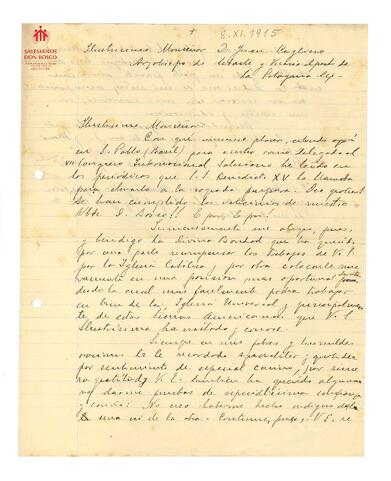 8-XI-1915
SALESIANOS
DON BOSCO
Ilustrísimo Monseñor D. Juan Cagliero
Arzobispo de Sebaste y Vicario Apost. de
la Patagonia
Ilustrísimo Monseñor:
Con qué inmenso placer, estando aquí
en S. Pablo (Brasil) para asistir como delegado al
VII Congreso Internacional Salesiano he leído en
los periódicos que S.S. Benedicto XV lo llamaba
para elevarlo a la sagrada púrpura. Deo gratias!
Se han cumplido los vaticinios de nuestro
Vble. D. Bosco!!
Inmensamente me alegro, pues,
y bendigo la Divina Bondad que ha querido
por una parte recompensar los trabajos de V.E.
por la Iglesia Católica, y por otra colocarle
en una posición más oportuna
desde la cual más facilmente podrá trabajar
en bien de la Iglesia Universal, y principalmen-
te de estas tierras Americanas que V.S.
Ilustrísima ha visitado y conoce.
Siempre en mis pobres y humildes
oraciones le he recordado
por sentimiento de especial cariño, por
gratitud, V.E. también ha querido algunas
darme pruebas de especialísima confianza
y cariño: No creo haberme hecho indigno de la
una ni de la otra. Continúe, pues, V.E.